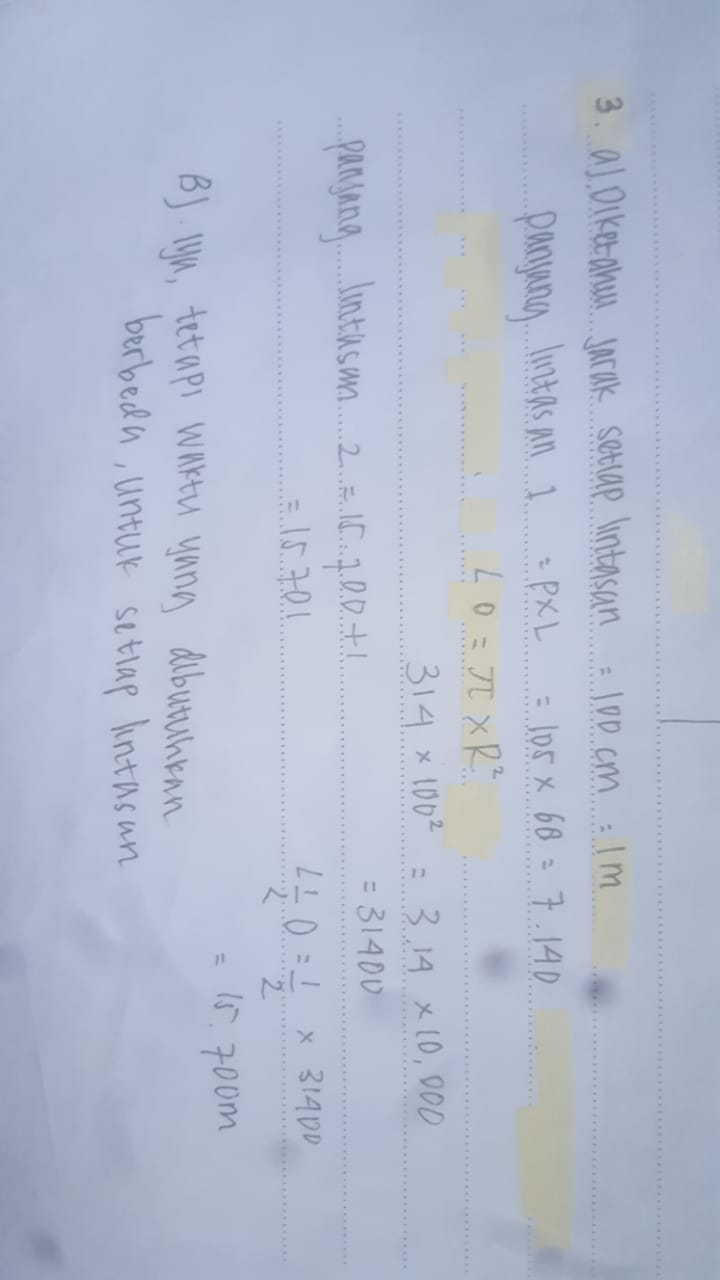 3. a). Diketahui jarak setiap lintasan = 100 cm = 1m
panjang lintasan 1 = PXL = 105 x 68 = 7.140
L O = π x R²
314 x 100² = 3.14 x 10,000
= 31400
panjang lintasan 2 = 15.700 + 1
= 15.701
L 1/2 O = 1/2 x 31400
= 15.700m
B). Iya, tetapi waktu yang dibutuhkan
berbeda, untuk setiap lintasan